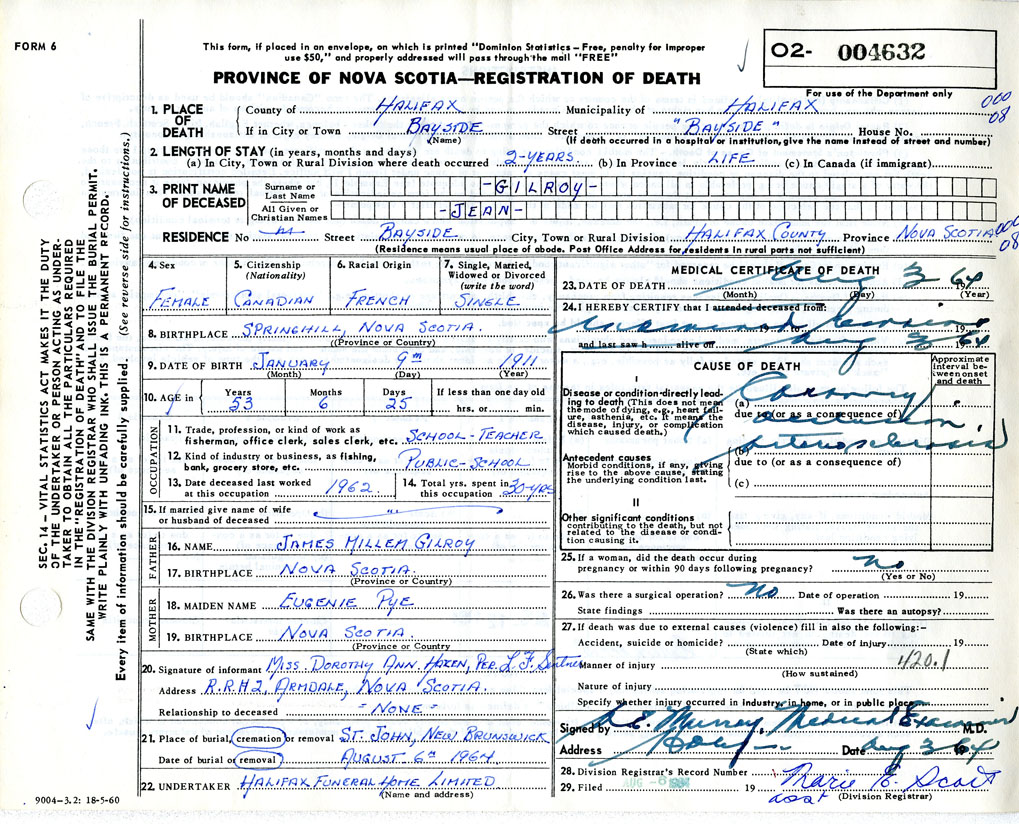 FORM 6
This form, if placed in an envelope, on which is printed "Dominion Statistics – Free, penalty for improper
use $50," and properly addressed will pass through the mail "FREE"
02- 004632
PROVINCE OF NOVA SCOTIA—REGISTRATION OF DEATH
For use of the Department only
1. PLACE OF DEATH County of HALIFAX Municipality of HALIFAX 000 08
If in City or Town BAYSIDE Street "BAYSIDE" House No.
(Name) (If death occurred in a hospital or institution, give the name instead of street and number)
2. LENGTH OF STAY (in years, months and days)
(a) In City, Town or Rural Division where death occurred 2-YEARS (b) In Province LIFE (c) In Canada (if immigrant)
3. PRINT NAME OF DECEASED Surname or Last Name -GILROY-
All Given or Christian Names -JEAN-
RESIDENCE No Street BAYSIDE City, Town or Rural Division HALIFAX COUNTY Province NOVA SCOTIA 000 08
(Residence means usual place of abode. Post Office Address for residents in rural parts not sufficient)
4. Sex 5. Citizenship (Nationality) 6. Racial Origin 7. Single, Married, Widowed or Divorced (write the word)
FEMALE CANADIAN FRENCH SINGLE
8. BIRTHPLACE SPRINGHILL, NOVA SCOTIA.
(Province or Country)
9. DATE OF BIRTH JANUARY 9TH 1911
(Month) (Day) (Year)
10. AGE in Years Months Days If less than one day old
53 6 25 hrs. or min.
OCCUPATION
11. Trade, profession, or kind of work as fisherman, office clerk, sales clerk, etc. SCHOOL-TEACHER
12. Kind of industry or business, as fishing, bank, grocery store, etc. PUBLIC-SCHOOL
13. Date deceased last worked at this occupation 1962. 14. Total yrs. spent in this occupation 30-YRS
15. If married give name of wife or husband of deceased "
FATHER
16. NAME JAMES MILLEM GILROY
17. BIRTHPLACE NOVA SCOTIA.
(Province or Country)
MOTHER
18. MAIDEN NAME EUGENIE PYE
19. BIRTHPLACE NOVA SCOTIA.
(Province or Country)
20. Signature of informant MISS DOROTHY ANN. HAXEN, PER. L. F.
Address R.R#2, ARMDALE, NOVA SCOTIA.
Relationship to deceased - NONE -
21. Place of burial, cremation or removal ST. JOHN, NEW BRUNSWICK
Date of burial or removal AUGUST 6TH 1964
22. UNDERTAKER HALIFAX FUNERAL HOME LIMITED
(Name and address)
9004-3.2: 18-5-60
MEDICAL CERTIFICATE OF DEATH
23. DATE OF DEATH Aug 3 1964
(Month) (Day) (Year)
24. I HEREBY CERTIFY that I attended deceased from:
19
and last saw h alive on Aug 3 1964
CAUSE OF DEATH
Approximate interval between onset and death
I
Disease or condition directly leading to death (This does not mean the mode of dying, e.g., heart failure, asthenia, etc. It means the disease, injury, or complication which caused death.)
(a) Coronary occlusion,
due to (or as a consequence of)
Antecedent causes
Morbid conditions, if any, giving rise to the above cause, stating the underlying condition last.
(b) Arteriosclerosis
due to (or as a consequence of)
(c)
II
Other significant conditions contributing to the death, but not related to the disease or condition causing it.
25. If a woman, did the death occur during pregnancy or within 90 days following pregnancy? no
(Yes or No)
26. Was there a surgical operation? No Date of operation 19
State findings Was there an autopsy?
27. If death was due to external causes (violence) fill in also the following:–
Accident, suicide or homicide? Date of injury 19
(State which)
420.1
Manner of injury
(How sustained)
Nature of injury
Specify whether injury occurred in industry, in home, or in public place
Signed by E. Murray, Medical Examiner M.D.
Address Date Aug 3 1964
28. Division Registrar's Record Number
29. Filed AUG -6 1964 19 Marie E. Scott
asst (Division Registrar)
SEC. 14 – VITAL STATISTICS ACT MAKES IT THE DUTY
OF THE UNDERTAKER OR PERSON ACTING AS UNDER-
TAKER TO OBTAIN ALL THE PARTICULARS REQUIRED
IN THE "REGISTRATION OF DEATH" AND TO FILE THE
SAME WITH THE DIVISION REGISTRAR WHO SHALL ISSUE THE BURIAL PERMIT.
WRITE PLAINLY WITH UNFADING INK. THIS IS A PERMANENT RECORD.
Every item of information should be carefully supplied. (See reverse side for instructions.)